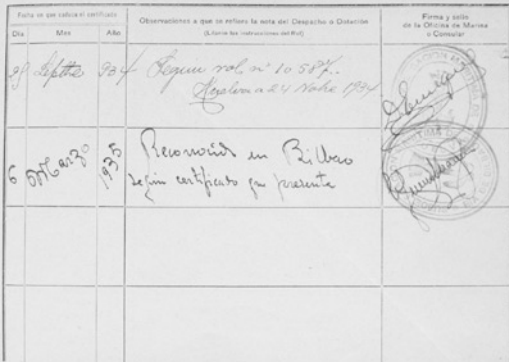 Fecha en que caduca el certificado
Día Mes Año
Observaciones a que se refiere la nota del Despacho o Dotación
(Léanse las instrucciones del Rol)
Firma y sello
de la Oficina de Marina
o Consular
29 Septbe 934 Segun rol nº 10587.
Huelva a 24 Nobre 1934
6 Marzo 1935 Reconocido en Bilbao
según certificado que presenta